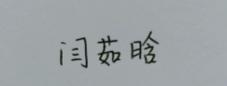 闫茹晗